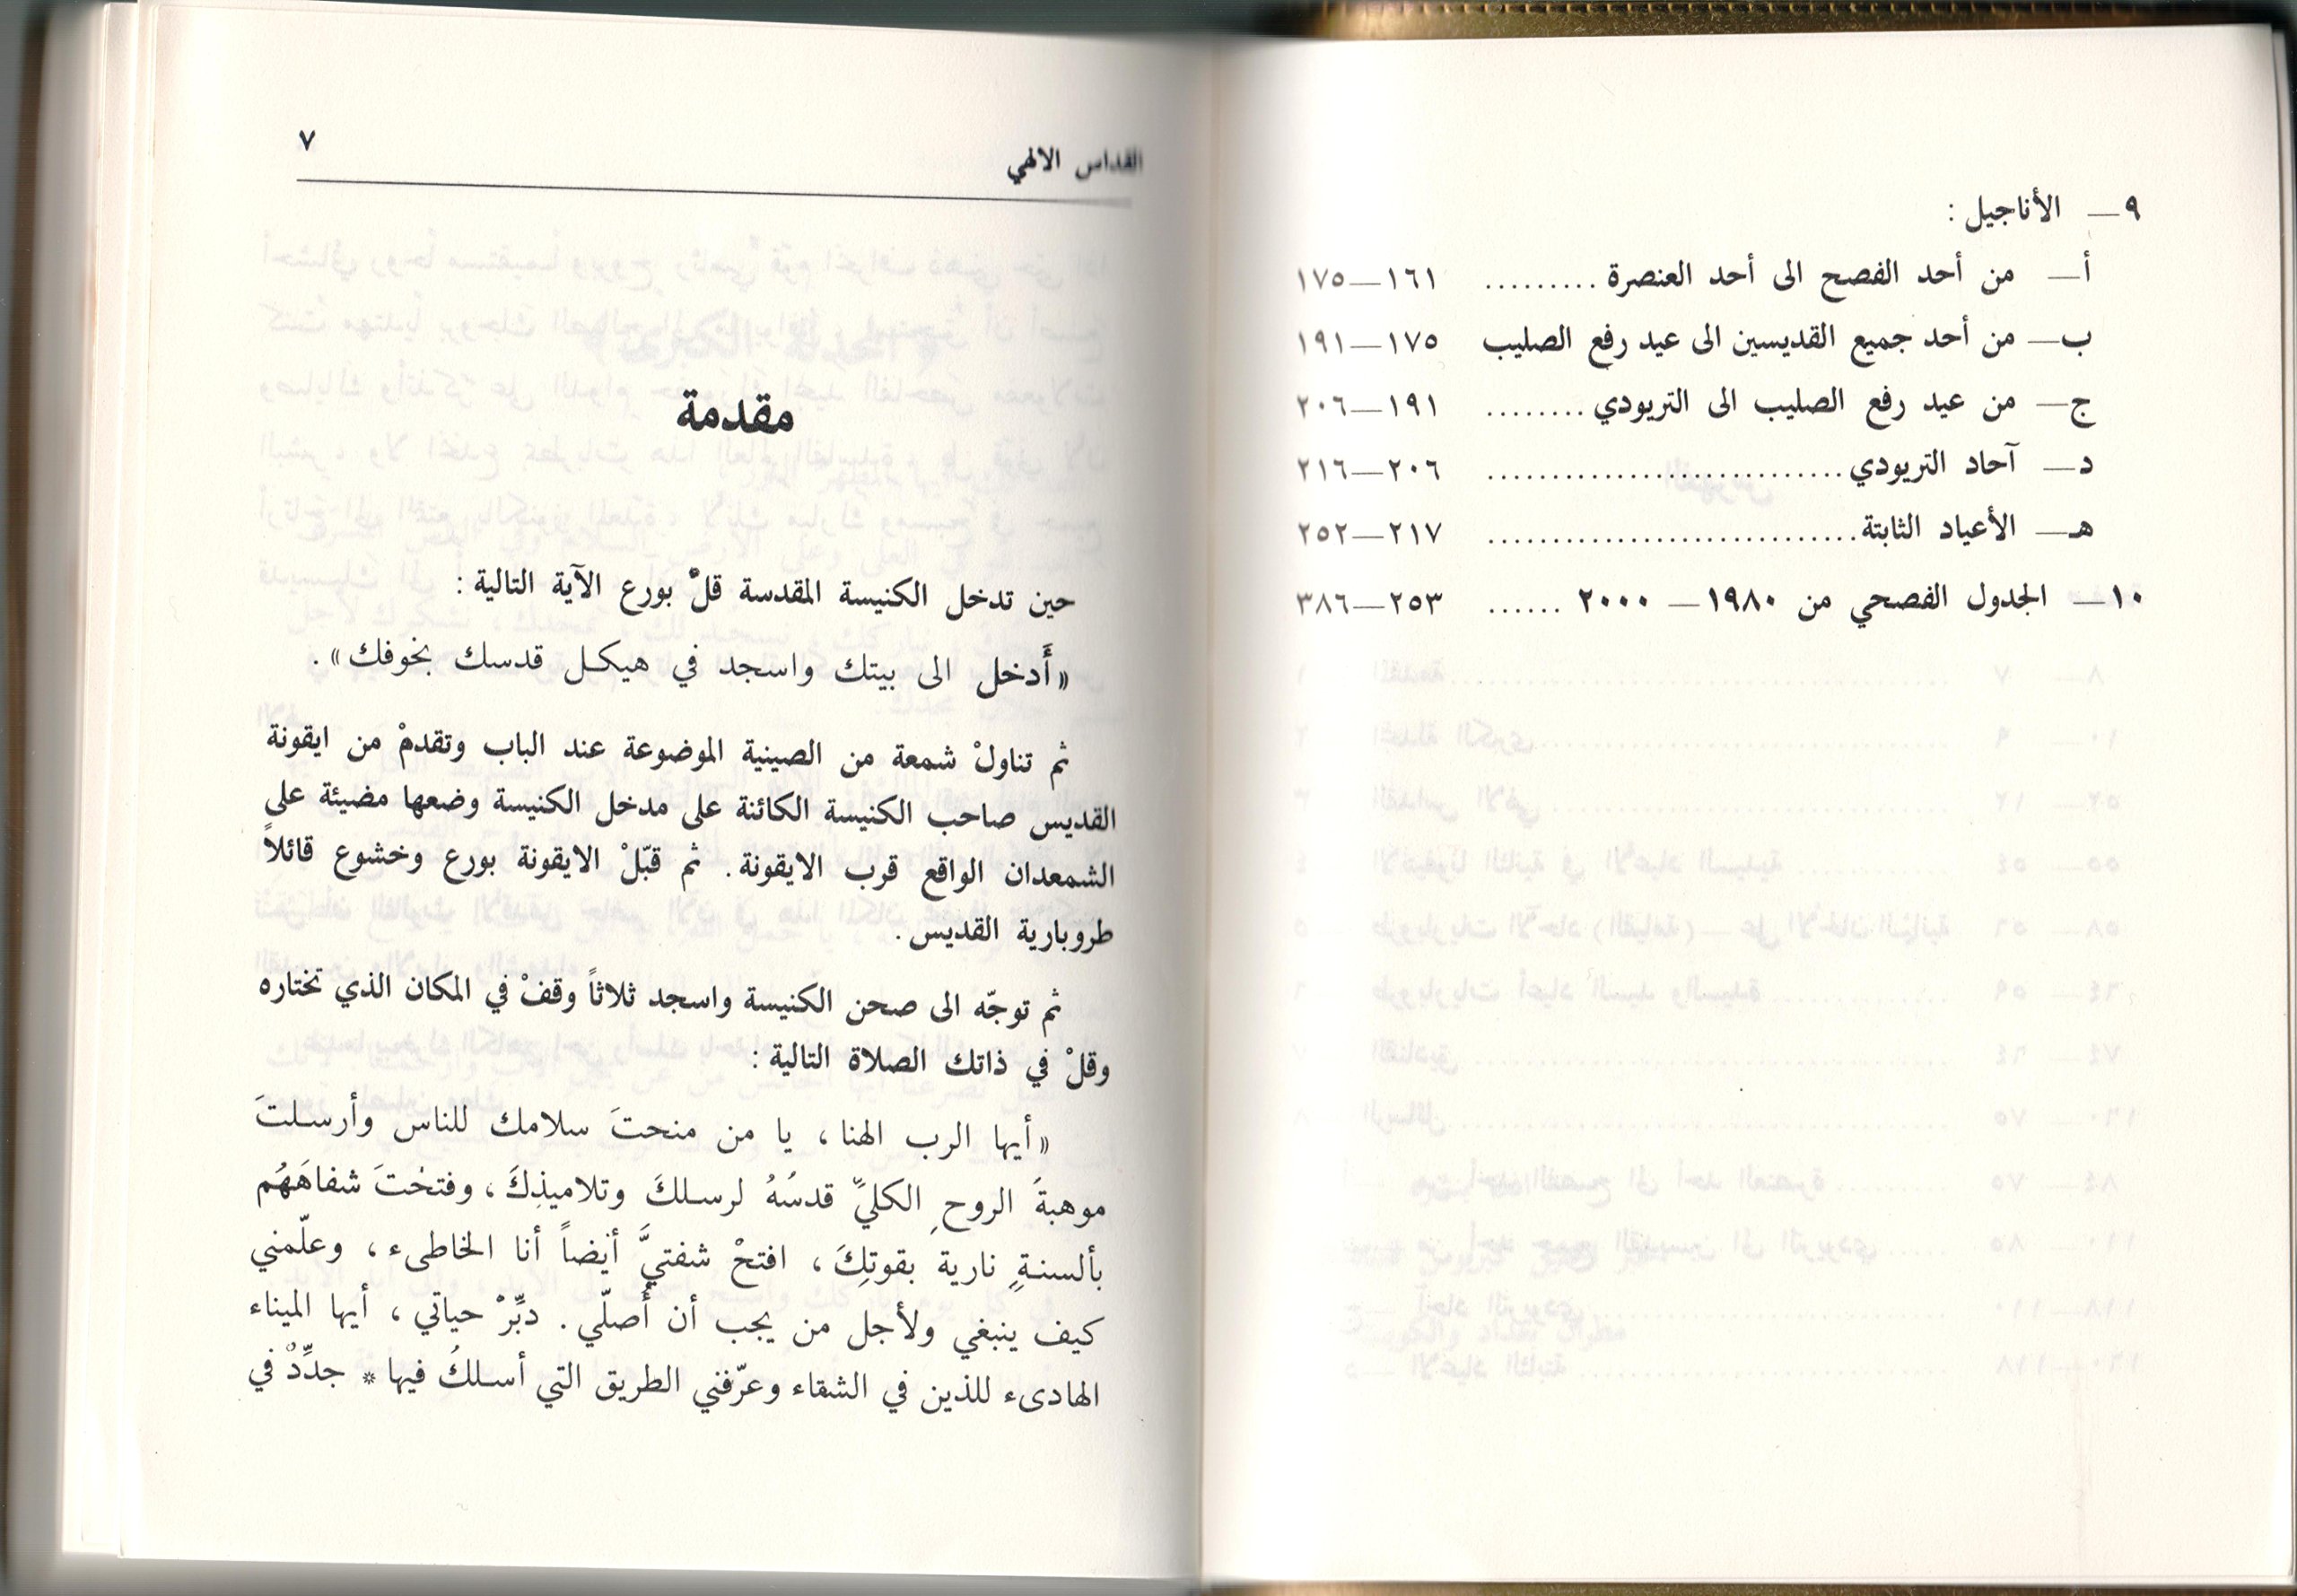 ٩— الأناجيل :
أ— من أحد الفصح الى أحد العنصرة ......... ١٦١—١٧٥
ب— من أحد جميع القديسين الى عيد رفع الصليب ١٧٥—١٩١
ج— من عيد رفع الصليب الى التريودي ........ ١٩١—٢٠٦
د— آحاد التريودي ............................ ٢٠٦—٢١٦
هـ— الأعياد الثابتة ............................. ٢١٧—٢٥٢
١٠— الجدول الفصحي من ١٩٨٠— ٢٠٠٠ ...... ٢٥٣—٣٨٦
القداس الالهي ٧
مقدمة
حين تدخل الكنيسة المقدسة قلْ بورع الآية التالية :
«أَدخل الى بيتك واسجد في هيكل قدسك بخوفك» .
ثم تناولْ شمعة من الصينية الموضوعة عند الباب وتقدمْ من ايقونة
القديس صاحب الكنيسة الكائنة على مدخل الكنيسة وضعها مضيئة على
الشمعدان الواقع قرب الايقونة . ثم قبّلْ الايقونة بورع وخشوع قائلاً
طروبارية القديس .
ثم توجّه الى صحن الكنيسة واسجد ثلاثاً وقفْ في المكان الذي تختاره
وقلْ في ذاتك الصلاة التالية :
«أيها الرب الهنا ، يا من منحتَ سلامك للناس وأرسلتَ
موهبةَ الروحِ الكليِّ قدسُهُ لرسلكَ وتلاميذِكَ ، وفتحْتَ شفاهَهُم
بألسنةٍ نارية بقوتكَ ، افتحْ شفتيَّ أيضاً أنا الخاطىء ، وعلّمني
كيف ينبغي ولأجل من يجب أن أُصلّي . دبِّرْ حياتي ، أيها الميناء
الهادىء للذين في الشقاء وعرّفني الطريق التي أسلكُ فيها * جدِّدْ في